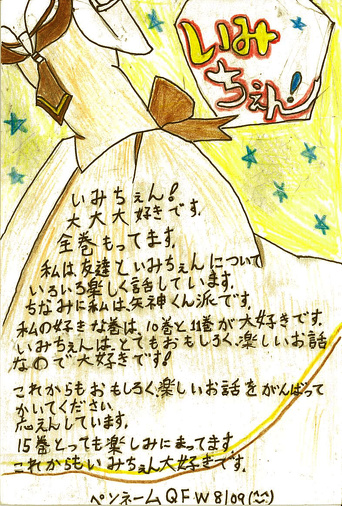 いみ
ちぇん!
いみちぇん!
大大大好きです。
全巻もってます。
私は友達といみちぇんについて
いろいろ楽しく話しています。
ちなみに私は、矢神くん派です。
私の好きな巻は、10巻と11巻が大好きです。
いみちぇんは、とてもおもしろく、楽しいお話
なので大好きです!
これからもおもしろく、楽しいお話をがんばって
かいてください
応えんしています。
15巻とっても楽しみにまってます
これからもいみちぇん大好きです。
ペンネームQFW8/09(^^)